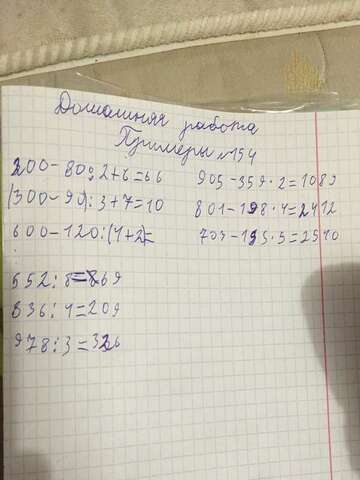 Домашняя работа
Примеры №154
200-80:2+6=66
(300-90):3+7=10
600-120:(1+2)=
552:8=69
836:4=209
978:3=326
905-359·2=1089
801-198·4=2412
703-195·5=2540